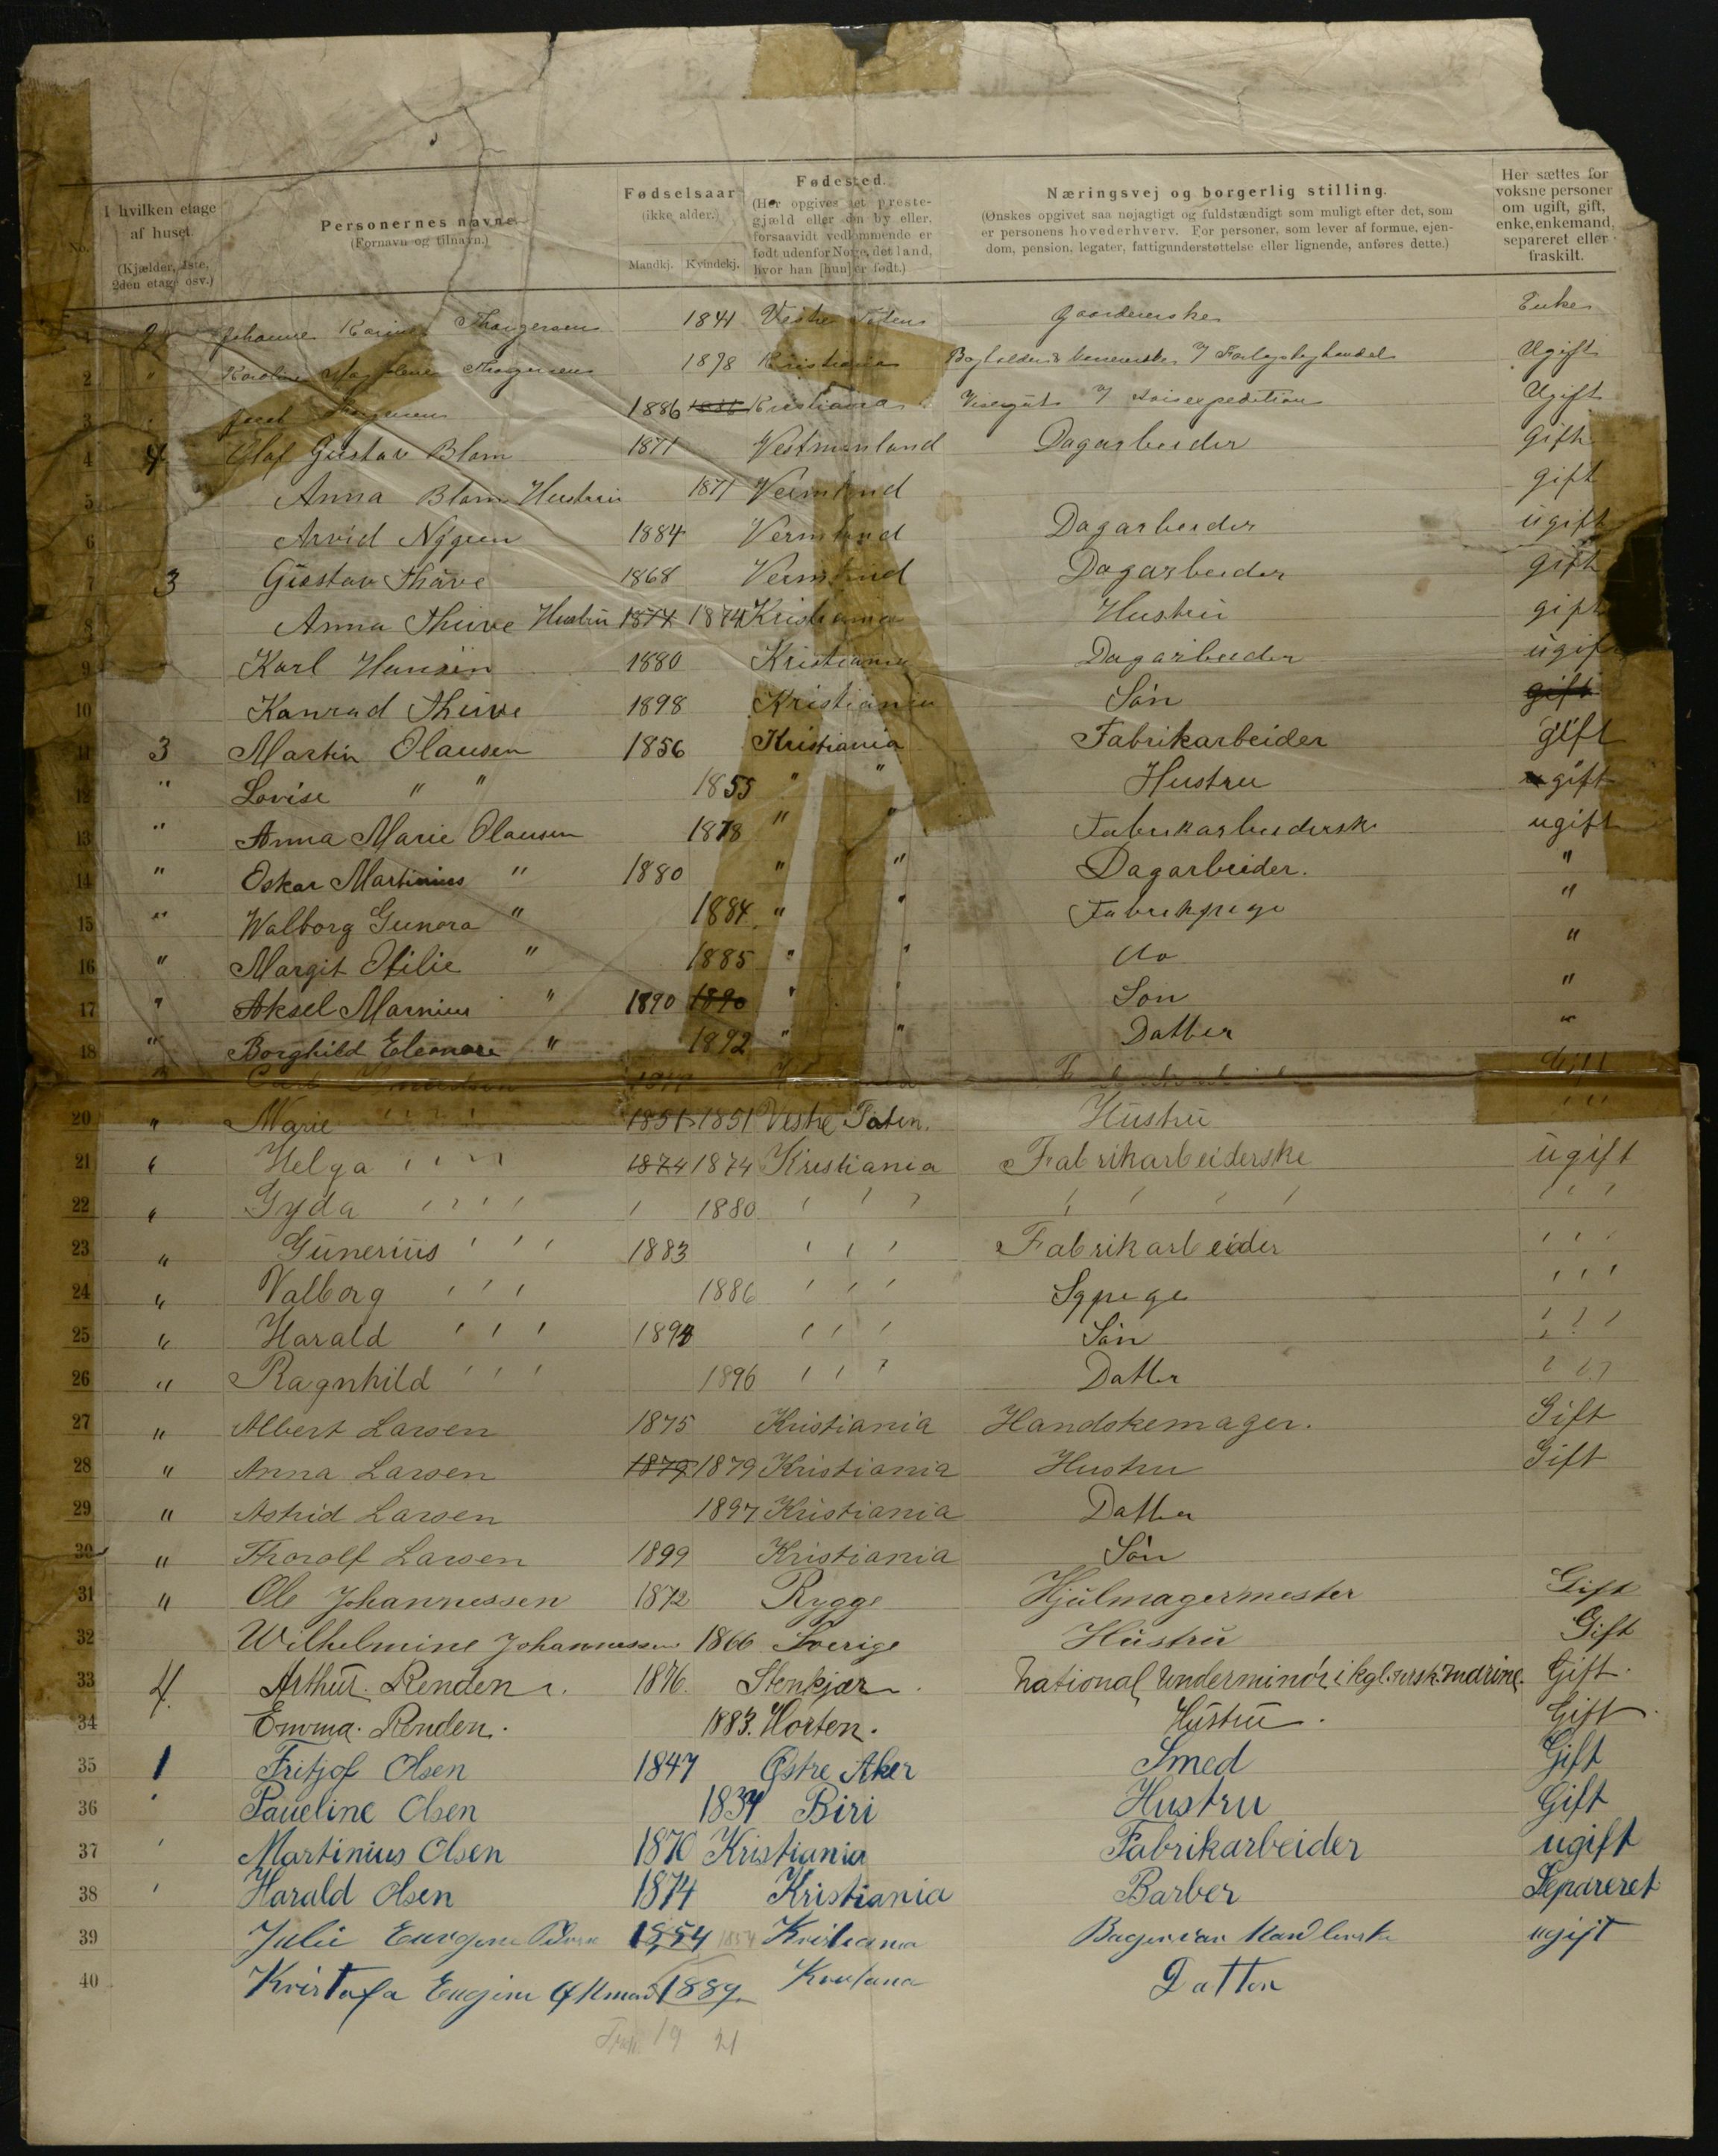 No.
I hvilken etage af huset. (Kjælder, 1ste, 2den etage osv.)
Personernes navne. (Fornavn og tilnavn.)
Fødselsaar (ikke alder.) Mandkj. Kvindekj.
Fødested. (Her opgives det prestegjæld eller den by eller, forsaavidt vedkommende er født udenfor Norge, det land, hvor han [hun] er født.)
Næringsvej og borgerlig stilling. (Ønskes opgivet saa nøjagtigt og fuldstændigt som muligt efter det, som er personens hovederhverv. For personer, som lever af formue, ejendom, pension, legater, fattigunderstøttelse eller lignende, anføres dette.)
Her sættes for voksne personer om ugift, gift, enke, enkemand, separeret eller fraskilt.
1 2 Johanne Karine Thorgersen 1841 Vestre Toten Gaardeierske Enke
2 " Karoline Thorgersen 1878 Kristiania Ugift
3 Thorgersen 1886 1886 Kristiania Visergut Ugift
4 4 Olaf Gustav Blom 1871 Vestmanland Dagarbeider Gift
5 Anna Blom Hustru 1871 Vermland gift
6 Arvid Nygren 1884 Vermland Dagarbeider ugift
7 3 Gustav Thuve 1868 Vermland Dagarbeider gift
8 Anna Thuve Hustru 1874 1874 Kristiania Hustru gift
9 Karl Hansen 1880 Kristiania Dagarbeider ugift
10 Konrad Thuve 1898 Kristiania Søn gift
11 3 Martin Olausen 1856 Kristiania Fabrikarbeider gift
12 " Lovise " " 1855 " " Hustru gift
13 " Anna Marie Olausen 1878 " " Fabrikarbeiderske ugift
14 " Oskar Martinius " 1880 " " Dagarbeider. "
15 " Walborg Gunora " 1884 " " Fabrikpige "
16 " Margit Otilie " 1885 " " do "
17 " Aksel Marnius " 1890 1890 " " Søn "
18 " Borghild Eleonore " 1892 " " Datter "
Gift
20 " Marie " " 1851 1851 Vestre Toten. Hustru " "
21 " Helga " " 1874 1874 Kristiania Fabrikarbeiderske ugift
22 " Gyda " " 1880 " " " " " "
23 " Gunerius " " 1883 " " Fabrikarbeider " "
24 " Valborg " " 1886 " " Sypige " "
25 " Harald " " " " Søn " "
26 " Ragnhild " " 1896 " " Datter " "
27 " Albert Larsen 1875 Kristiania Handskemager. Gift
28 " Anna Larsen 1879 1879 Kristiania Hustru Gift
29 " Astrid Larsen 1897 Kristiania Datter
30 " Thorolf Larsen 1899 Kristiania Søn
31 " Ole Johannessen 1872 Rygge Hjulmagermester Gift
32 Wilhelmine Johannessen 1866 Sverige Hustru Gift
33 4. Arthur. Renden. 1876. Stenkjær. National Underminør i kgl. norsk. marine. Gift.
34 Emma. Renden. 1883. Horten. Hustru. Gift.
35 1 Fritjof Olsen 1847 Østre Aker Smed Gift
36 " Paueline Olsen 1834 Biri Hustru Gift
37 " Martinius Olsen 1870 Kristiania Fabrikarbeider ugift
38 " Harald Olsen 1874 Kristiania Barber Separeret
39 Julie 1854 1854 Kristiania ugift
40 Kristofa Eugine 1889 Kristiania Datter
19 21